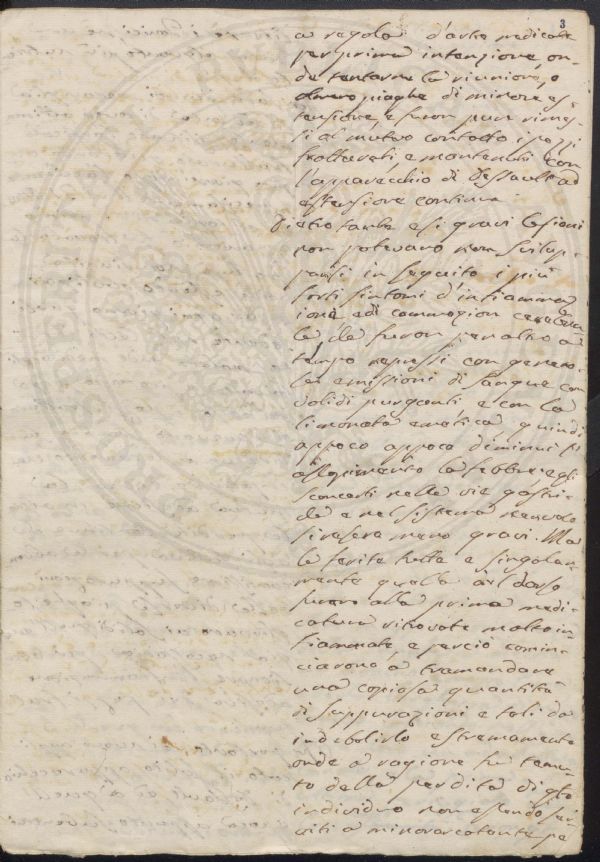 3
a regola d'arte medicate
per prima intenzione, on-
de tentarne la riunione, o
almeno piaghe di minore es-
tensione, e furon pure rimes-
si al mutuo contatto i pezzi
fratturati, e mantenuti con
l'apparecchio di Dessault ad
estensione continua
Dietro tante e sì gravi lesioni
non potevano non svilup-
parsi in seguito i più
forti sintomi d'infiamma
ione ed di commozion cerebra-
le che furon per altro a
tempo repressi con genero-
se emissioni di sangue con
validi purganti, e con la
limonata emetica quindi
appoco appoco diminuì
la febbre e gli
sconcerti nelle vie gastri-
che e nel sistema nervoso
si resero meno gravi. Ma
le ferite tutte e singolar-
mente quella del dorso
furon alla prima medi-
catura ritrovate molto in-
fiammate, e perciò comin-
ciarono a tramandare
una copiosa quantità
di suppurazioni e tali da
indebolirlo estremamente
onde a ragione fu temu-
to della perdita di qto
individuo non essendo
a minorare tante pe